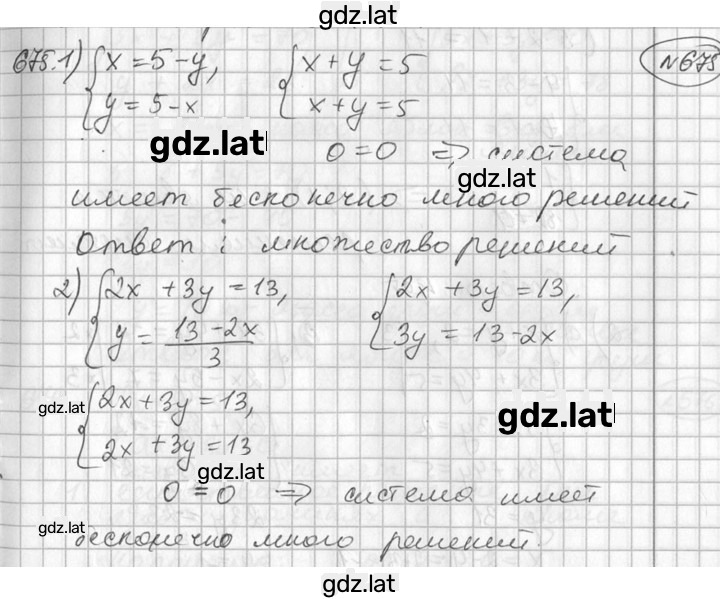 gdz.lat
675.1) { x = 5 - y, { x + y = 5 N675
y = 5 - x x + y = 5
gdz.lat 0 = 0 => система
gdz.lat
имеет бесконечно много решений
Ответ: множество решений
2) { 2x + 3y = 13, { 2x + 3y = 13,
y = (13 - 2x)/3 3y = 13 - 2x
gdz.lat { 2x + 3y = 13, gdz.lat
2x + 3y = 13
gdz.lat
0 = 0 => система имеет
gdz.lat
бесконечно много решений.
gdz.lat